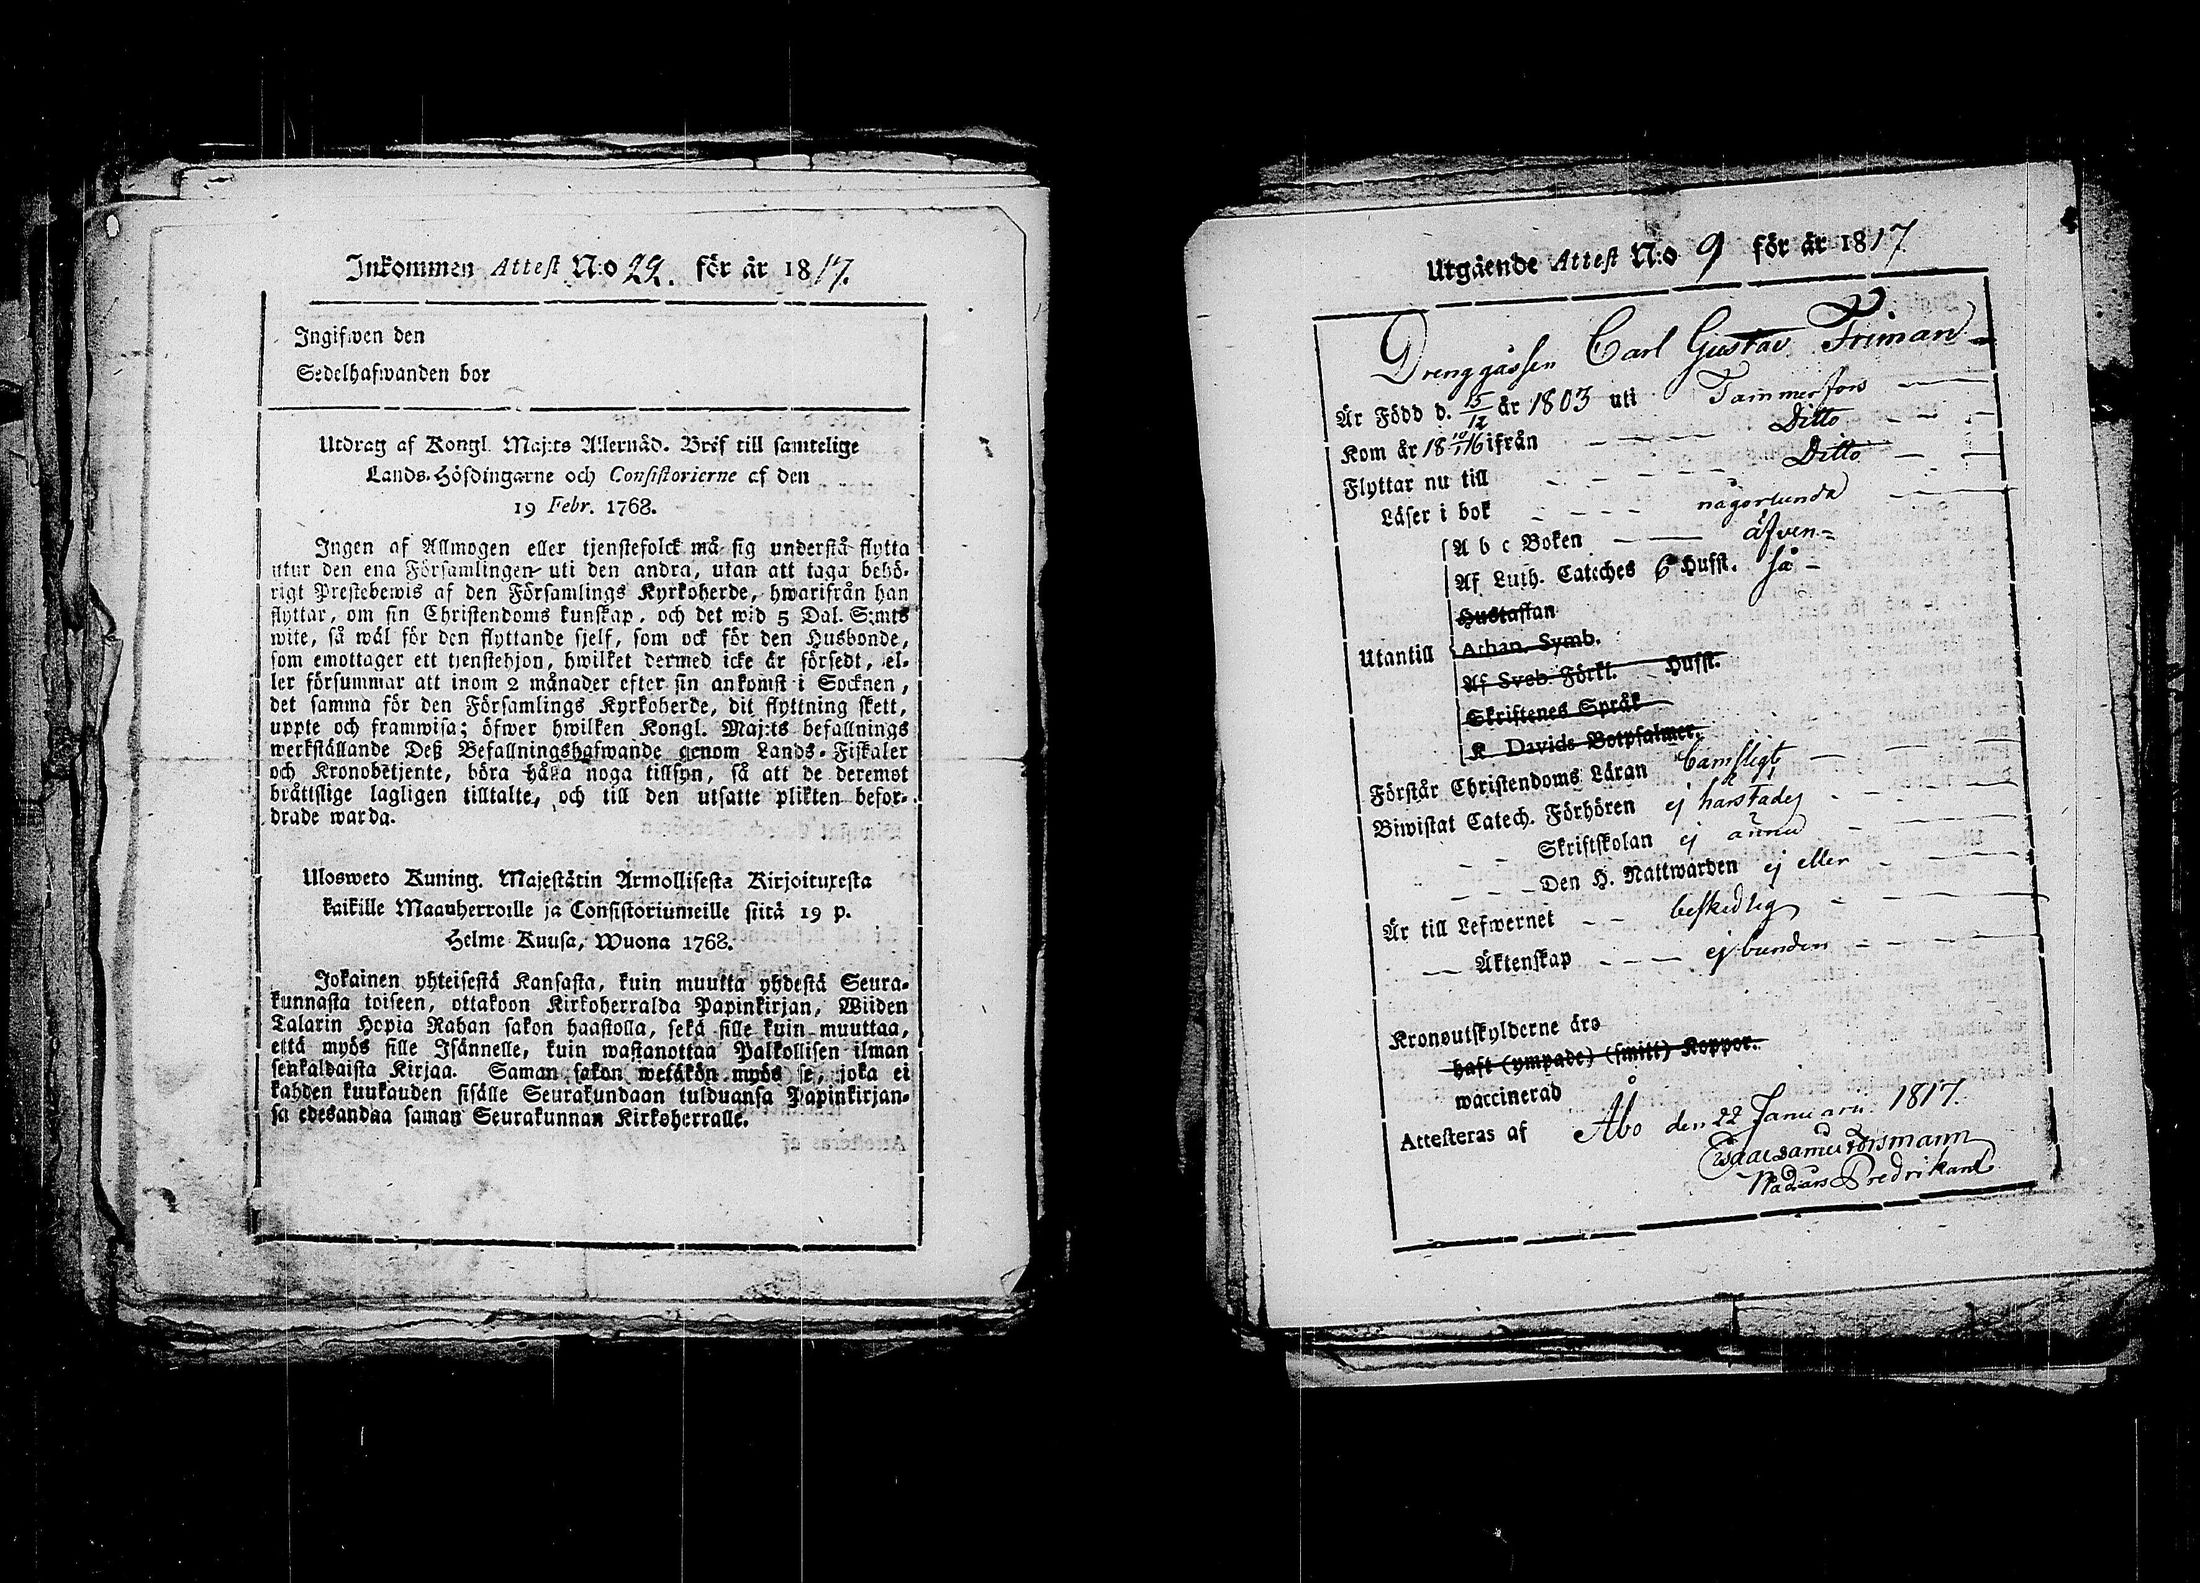 Inkommen Attest N:o 22. för år 1817.
Ingifwen den
Sedelhafwanden bor
Utdrag af Kongl. Maj:ts Allernåd. Bref till samtelige
Lands-Höfdingarne och Consistorierne af den
19 Febr. 1768.
Ingen af Allmogen eller tjenstefolck må sig understå flytta
utur den ena Församlingen uti den andra, utan att taga behö-
rigt Prestebewis af den Församlings Kyrkoherde, hwarifrån han
flyttar, om sin Christendoms kunskap, och det wid 5 Dal. S:mts
wite, så wäl för den flyttande sjelf, som ock för den Husbonde,
som emottager ett tjenstehjon, hwilket dermed icke är försedt, el-
ler försummar att inom 2 månader efter sin ankomst i Socknen,
det samma för den Församlings Kyrkoherde, dit flyttning skett,
uppte och framwisa; öfwer hwilken Kongl. Maj:ts befallnings
werkställande Deß Befallningshafwande genom Lands-Fiskaler
och Kronobetjente, böra hålla noga tillsyn, så att de deremot
bråttslige lagligen tilltalte, och till den utsatte plikten befor-
drade warda.
Ulosweto Kuning. Majestätin Armollisesta Kirjoituxesta
kaikille Maanherroille ja Consistoriumeille siitä 19 p.
Helme Kuusa, Wuona 1768.
Jokainen yhteisestä Kansasta, kuin muutta yhdestä Seura-
kunnasta toiseen, ottakoon Kirkoherralda Papinkirjan, Wiiden
Talarin Hopia Rahan sakon haastolla, sekä sille kuin muuttaa,
että myös sille Isännelle, kuin wastanottaa Palkollisen ilman
senkaldaista Kirjaa. Saman sakon wetäkön myös se, joka ei
kahden kuukauden sisälle Seurakundaan tulduansa Papinkirjan-
sa edesandaa saman Seurakunnan Kirkoherralle.
Utgående Attest N:o 9 för år 1817
Drenggåssen Carl Gustav Friman
Är Född d. 15/12 år 1803 uti Tammerfors
Kom år 18 10/11 16 ifrån Ditto
Flyttar nu till Ditto
Läser i bok någorlunda
A b c Boken äfven=
Af Luth. Cateches 6 Hufst. så
Hustaflan
Utantill Athan. Symb.
Af Sveb. Förkl. Hufst.
Skriftenes Språk
K Davids Botpsalmer.
Förstår Christendoms Läran barnsligt
Biwistat Catech. Förhören ej härstädes
Skriftskolan ej ännu
Den H. Nattwarden ej eller
Är till Lefwernet beskedlig
Äktenskap ej bunden
Kronoutskylderne äro
haft (ympade) (smitt) Koppor.
waccinerad
Attesteras af Åbo den 22 Januarii 1817.
Isaac Samuel Forsmann
Predrikant